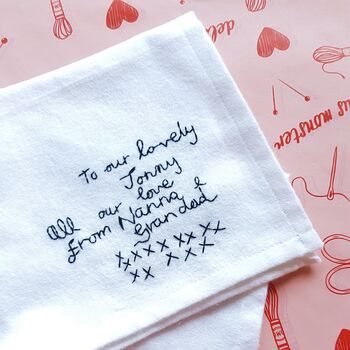 To our lovely
Jonny
All our love
From Nanna &
Grandad
xxxxx xx xx
xx xxx
del
us monster